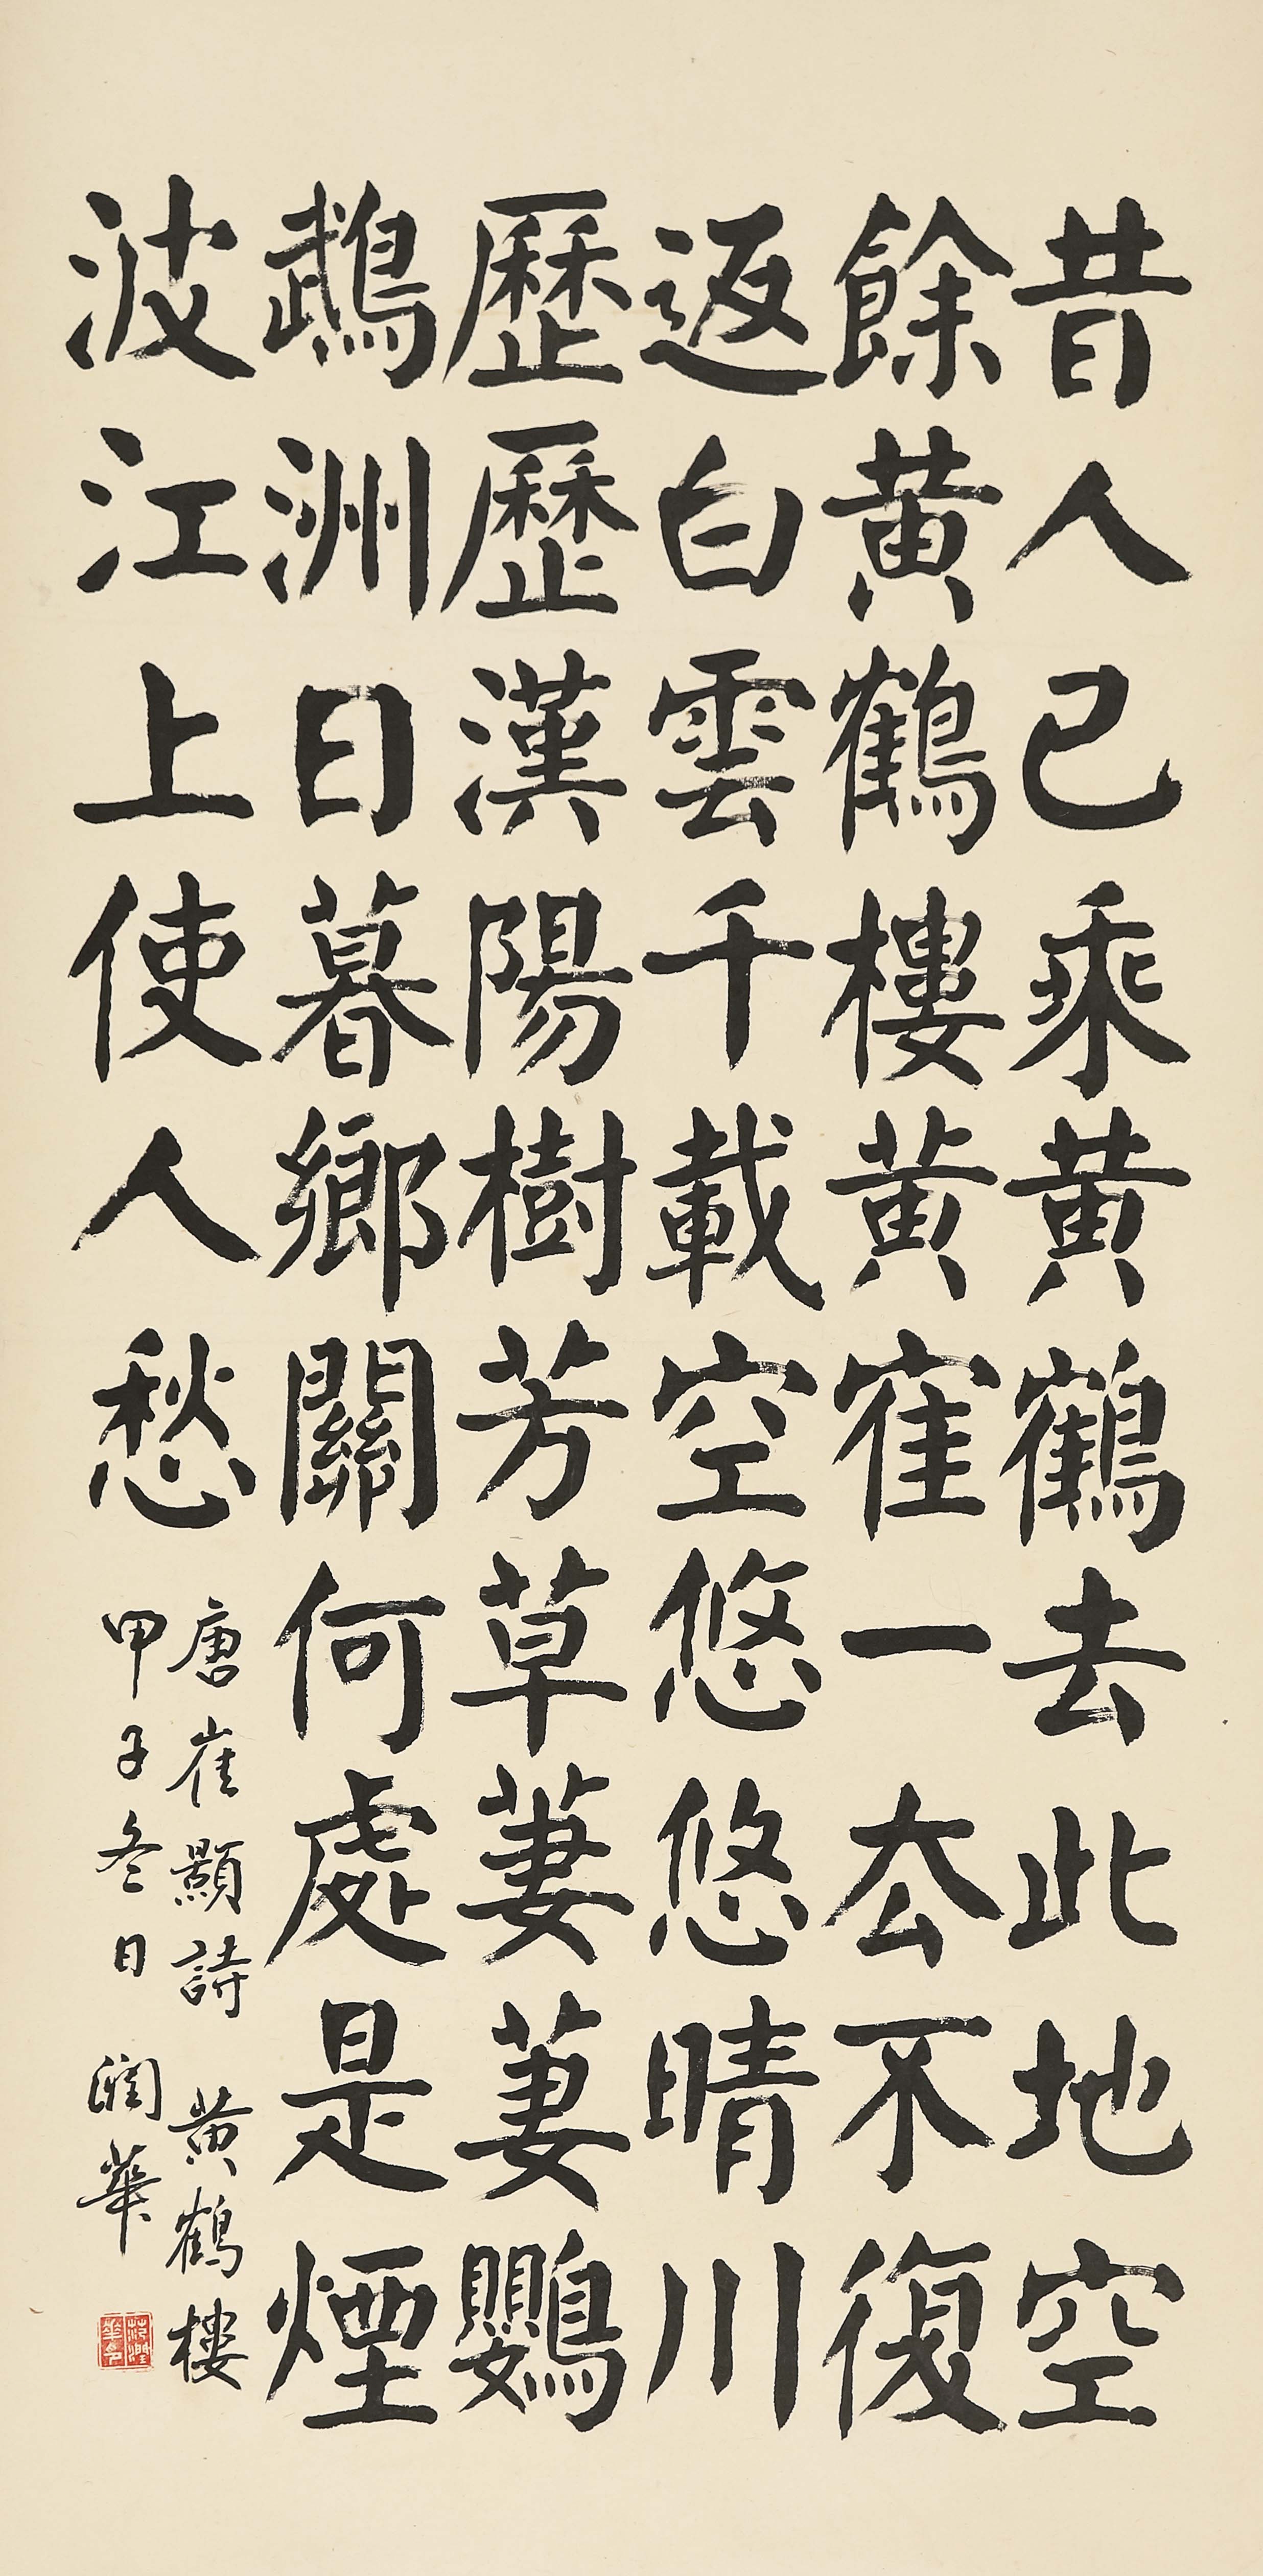 昔人已乘黃鶴去此地空
餘黃鶴樓黃寉一厺不復
返白雲千載空悠悠晴川
歷歷漢陽樹芳草萋萋鸚
鵡洲日暮鄉關何處是煙
波江上使人愁
唐崔顥詩 黃鶴樓
甲子冬日 潤華